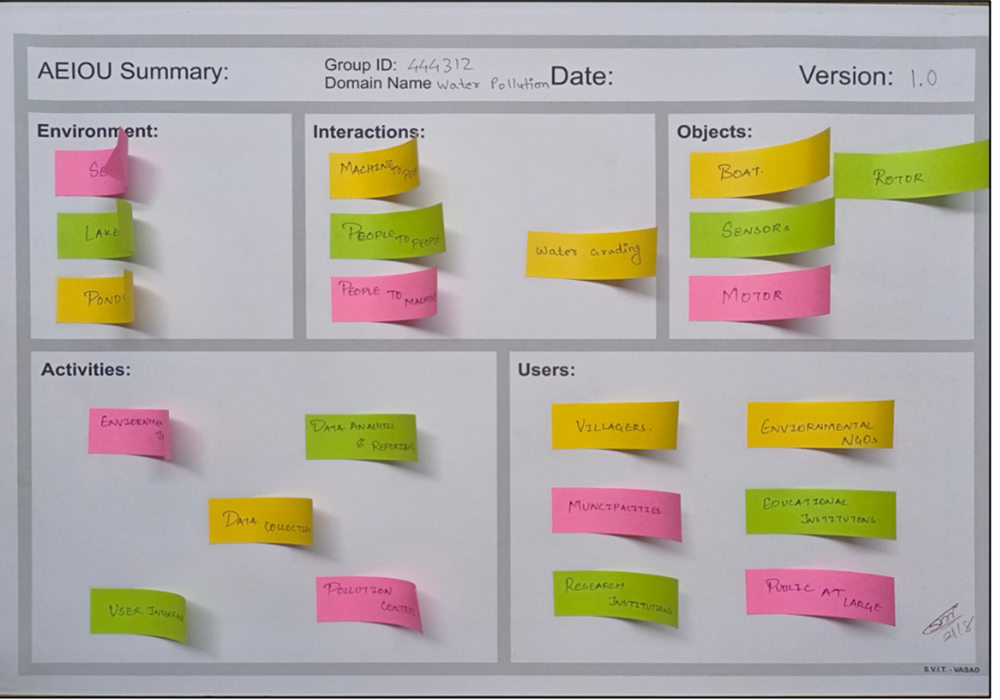 AEIOU Summary:
Group ID: 444312
Domain Name Water Pollution
Date:
Version: 1.0
Environment:
LAKE
POND
Interactions:
MACHINE TO
PEOPLE TO PEOPLE
PEOPLE TO
Water Grading
Objects:
BOAT.
ROTOR
SENSORS
MOTOR
Activities:
DATA ANALYSIS
& REPORING
DATA COLLECTION
USER INTERFACE
POLLUTION
CONTROL
Users:
VILLAGERS.
ENVIORNMENTAL
NGOS
MUNCIPALITIES
EDUCATIONAL
INSTITUTONS
RESEARCH
INSTITUTIONS
PUBLIC AT
LARGE
2/8
S.V.I.T. - VASAD